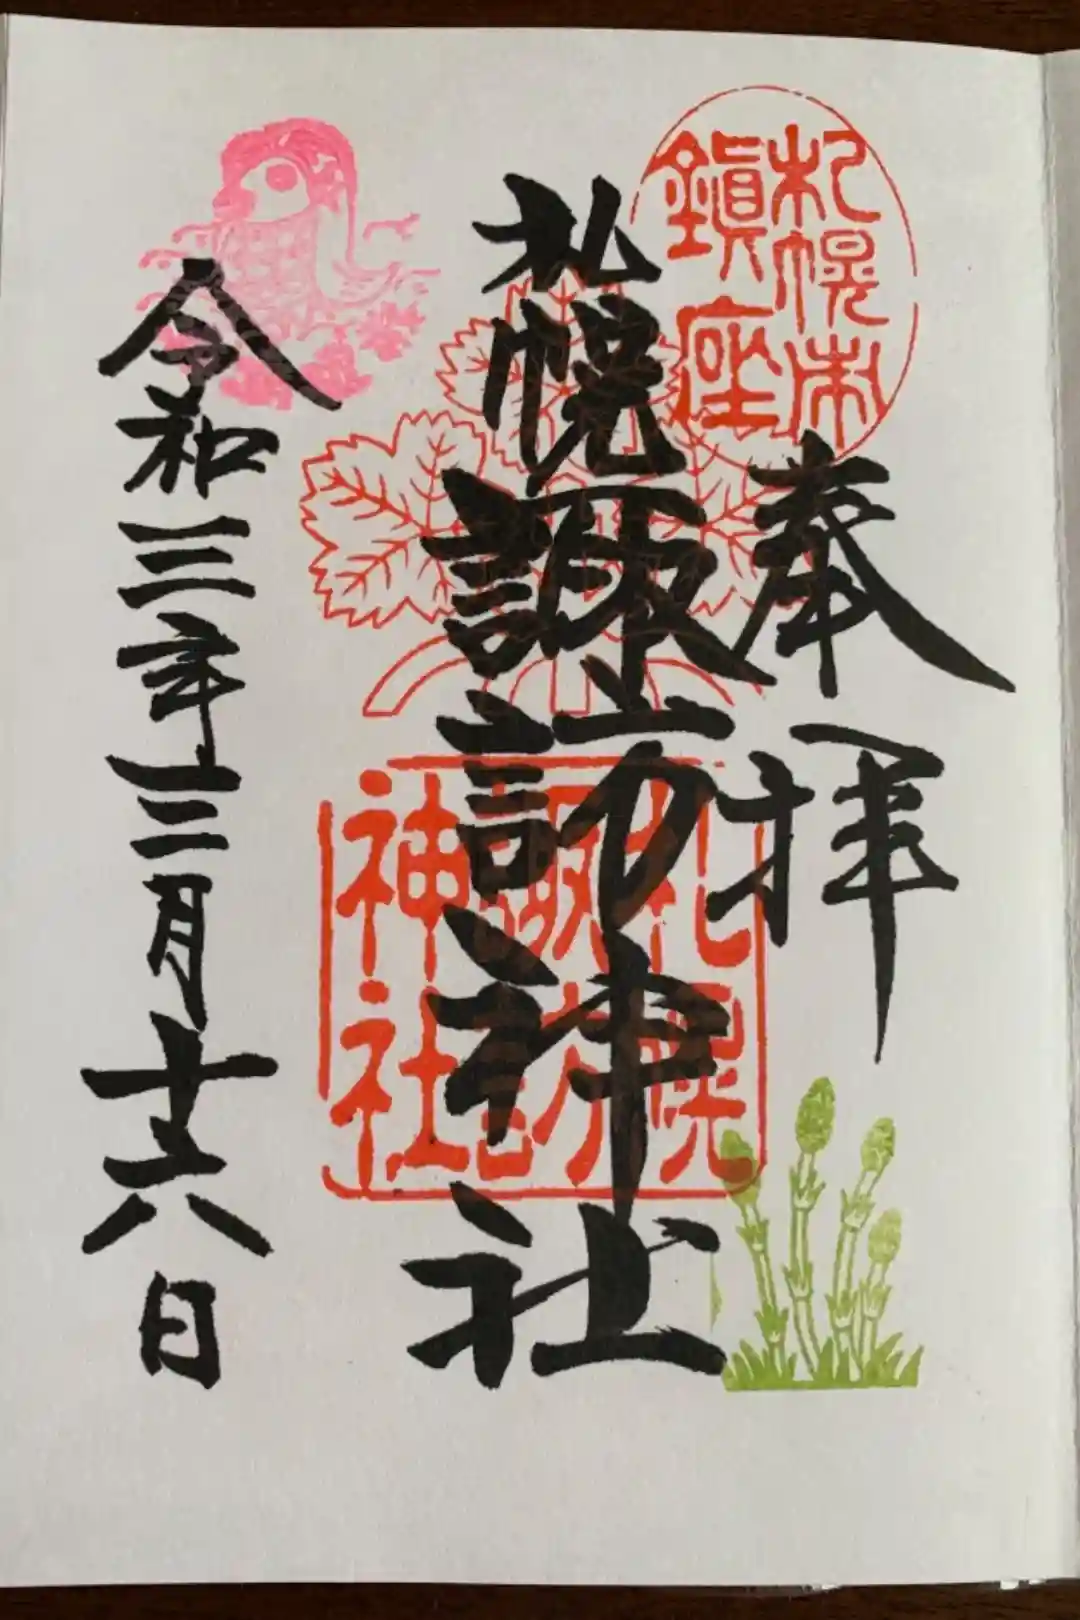 札幌市
鎭座
奉拝
札幌諏訪神社
札幌
諏訪
神社
令和三年三月十六日